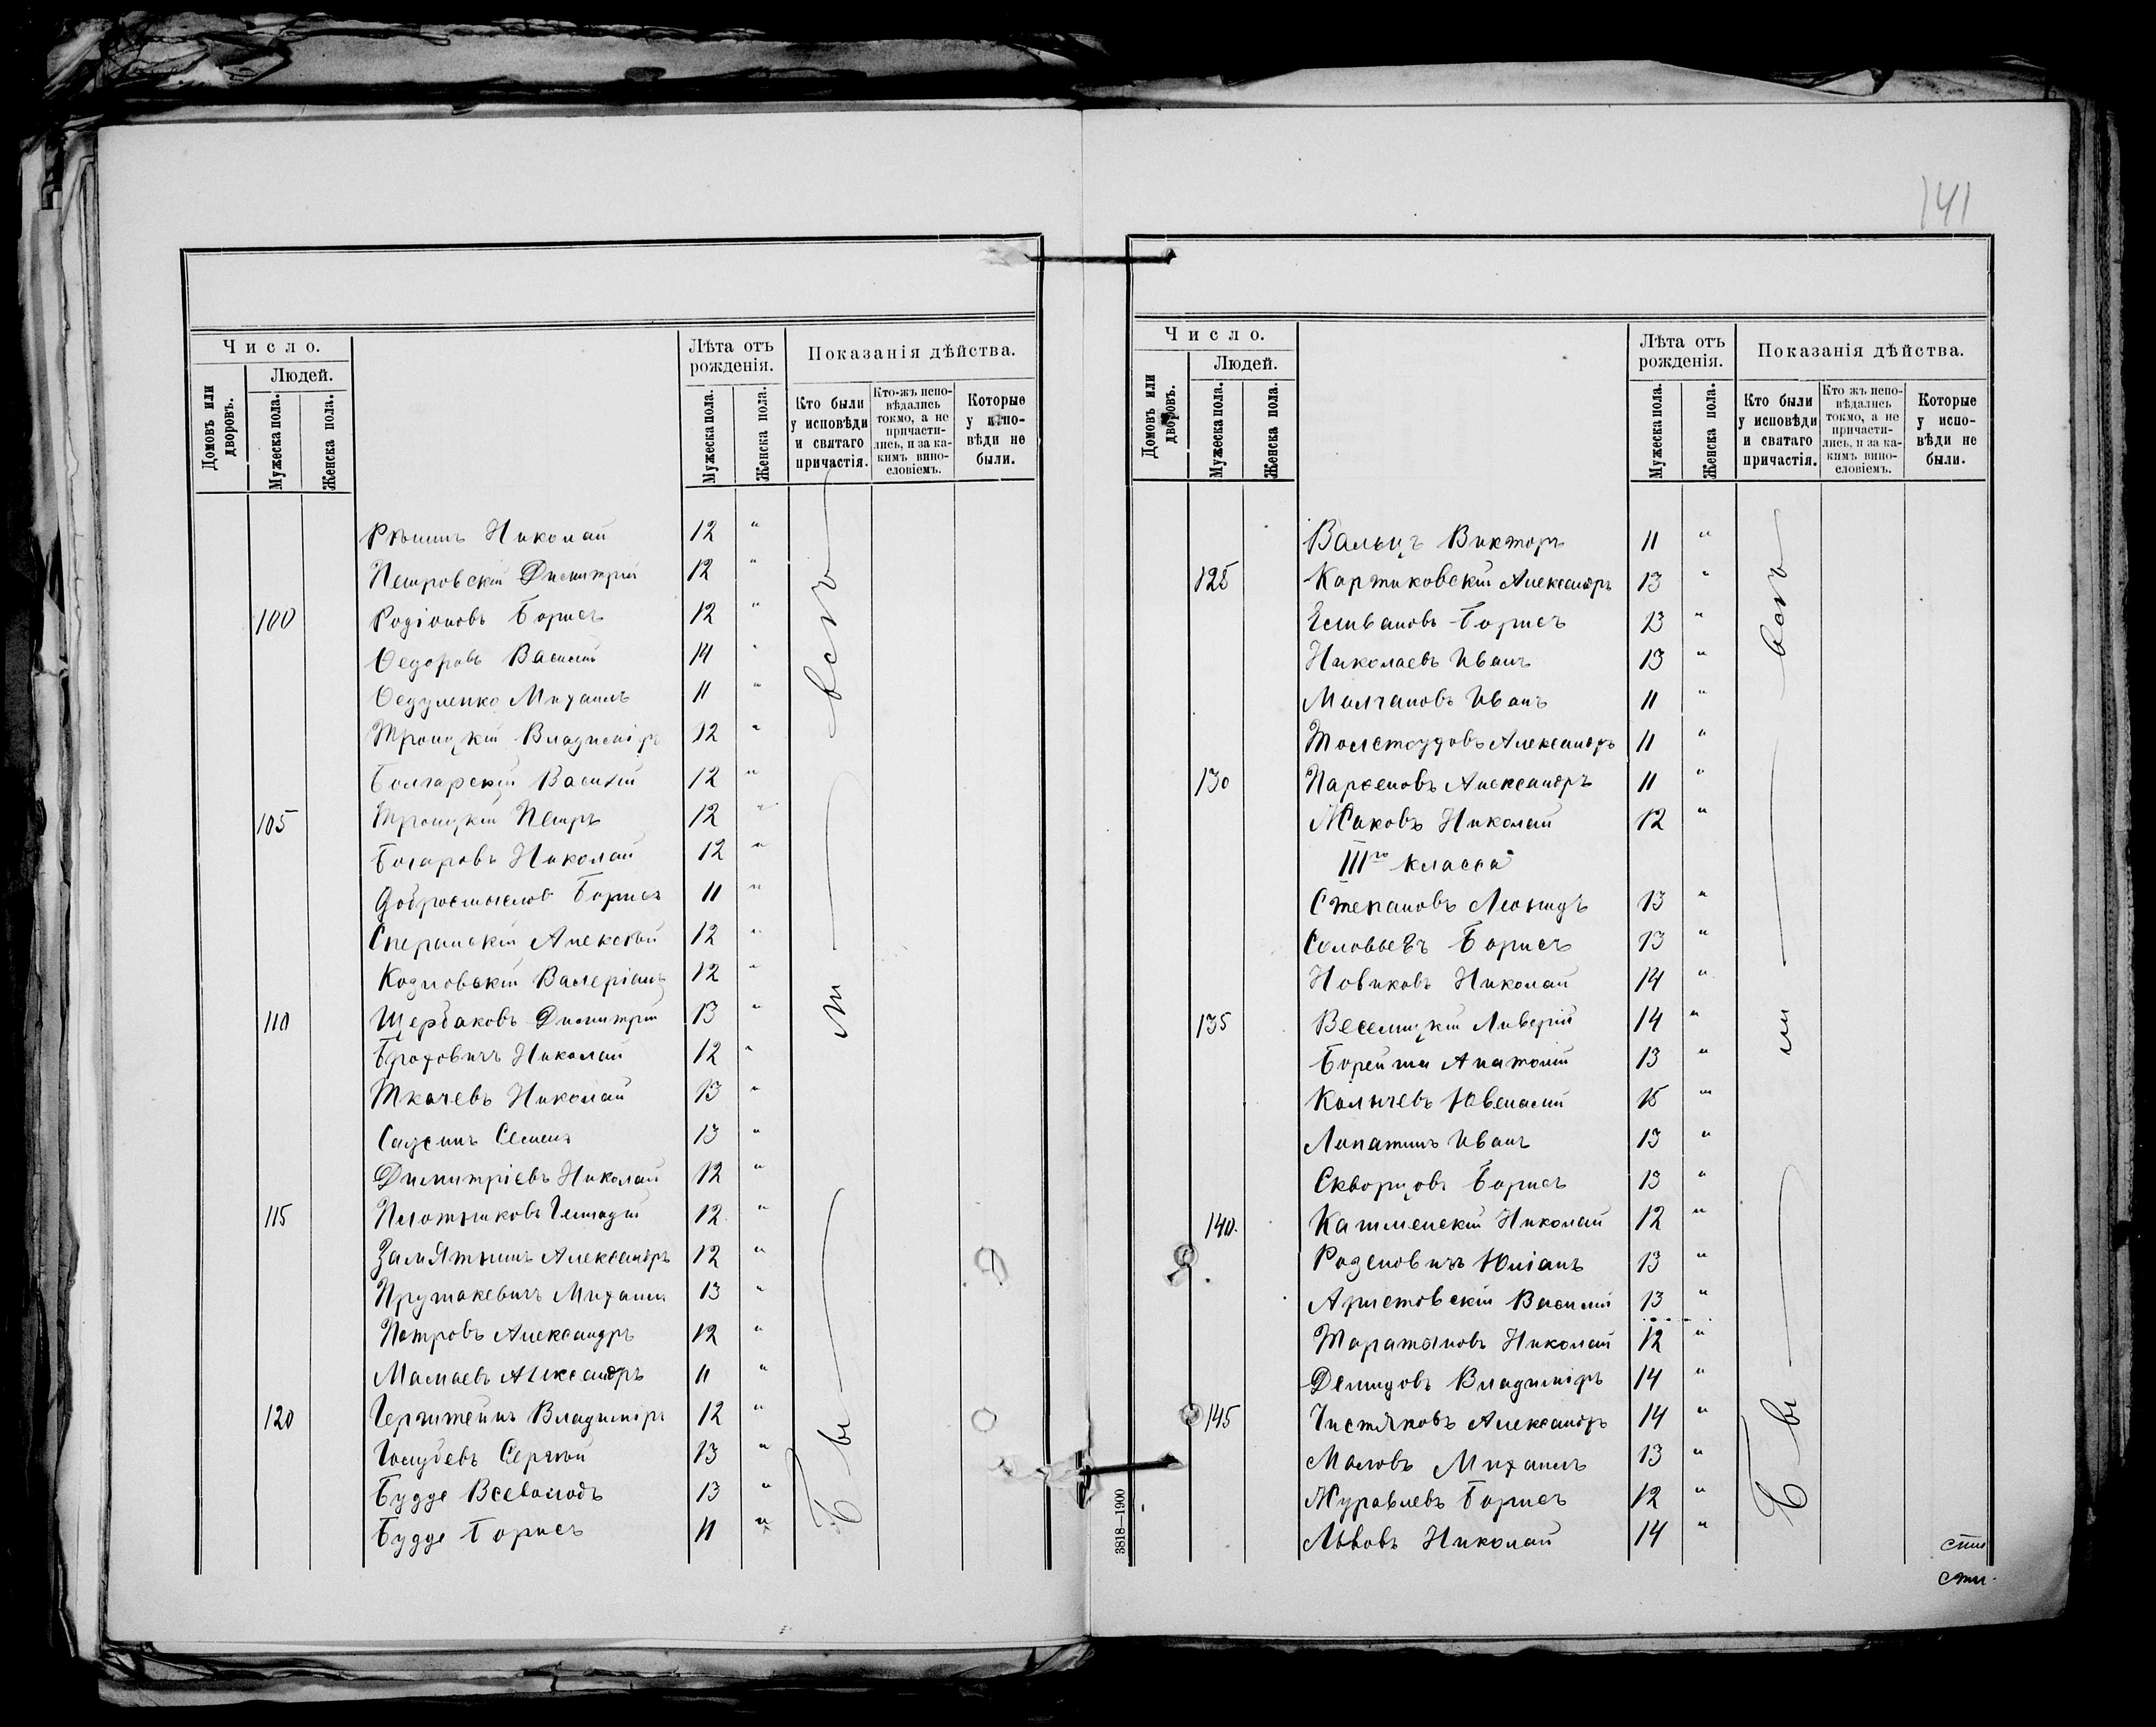 141
Число.
Лѣта отъ рожденія.
Показанія дѣйства.
Домовъ или дворовъ.
Людей.
Мужеска пола.
Женска пола.
Мужеска пола.
Женска пола.
Кто были у исповѣди и святаго причастія.
Кто-жъ испо-вѣдались токмо, а не причасти-лись, и за ка-кимъ вино-словіемъ.
Которые у испо-вѣди не были.
Николай 12 "
Петровскій Димитрій 12 "
100 Родіоновъ Борисъ 12 "
Ѳедоровъ Василій 14 "
Ѳедуленко Михаилъ 11 "
Троицкій Владиміръ 12 "
Болгарскій Василій 12 "
105 Троицкій Петръ 12 "
Николай 12 "
Добросмыслов Борисъ 11 "
Сперанскій Алексѣй 12 "
Козловскій Валеріанъ 12 "
110 Щербаковъ Димитрій 13 "
Бродовичъ Николай 12 "
Ткачевъ Николай 13 "
Семенъ 13 "
Димитріевъ Николай 12 "
115 Плотниковъ Геннадій 12 "
Замятнинъ Александръ 12 "
Михаилъ 13 "
Петровъ Александръ 12 "
Мамаевъ Александръ 11 "
120 Владиміръ 12 "
Голубевъ Сергѣй 13 "
Будде Всеволодъ 13 "
Будде Борисъ 11 "
Бы ли всѣ
Число.
Лѣта отъ рожденія.
Показанія дѣйства.
Домовъ или дворовъ.
Людей.
Мужеска пола.
Женска пола.
Мужеска пола.
Женска пола.
Кто были у исповѣди и святаго причастія.
Кто жъ испо-вѣдались токмо, а не причасти-лись, и за ка-кимъ вино-словіемъ.
Которые у испо-вѣди не были.
Вальцъ Викторъ 11 "
125 Картиковскій Александръ 13 "
Борисъ 13 "
Николаевъ Иванъ 13 "
Молчановъ Иванъ 11 "
Толстоудовъ Александръ 11 "
130 Парѳеновъ Александръ 11 "
Жаковъ Николай 12 "
IIIго класса
Степановъ Леонидъ 13 "
Соловьевъ Борисъ 13 "
Новиковъ Николай 14 "
135 Веселицкій Ливерій 14 "
Борейша Анатолій 13 "
Колычевъ Ювеналій 15 "
Лопатинъ Иванъ 13 "
Скворцовъ Борисъ 13 "
140. Кашменскій Николай 12 "
Юліанъ 13 "
Аристовскій Василій 13 "
Николай 12 "
Демидовъ Владиміръ 14 "
145 Чистяковъ Александръ 14 "
Маловъ Михаилъ 13 "
Журавлевъ Борисъ 12 "
Львовъ Николай 14 "
Бы ли
3818—1900